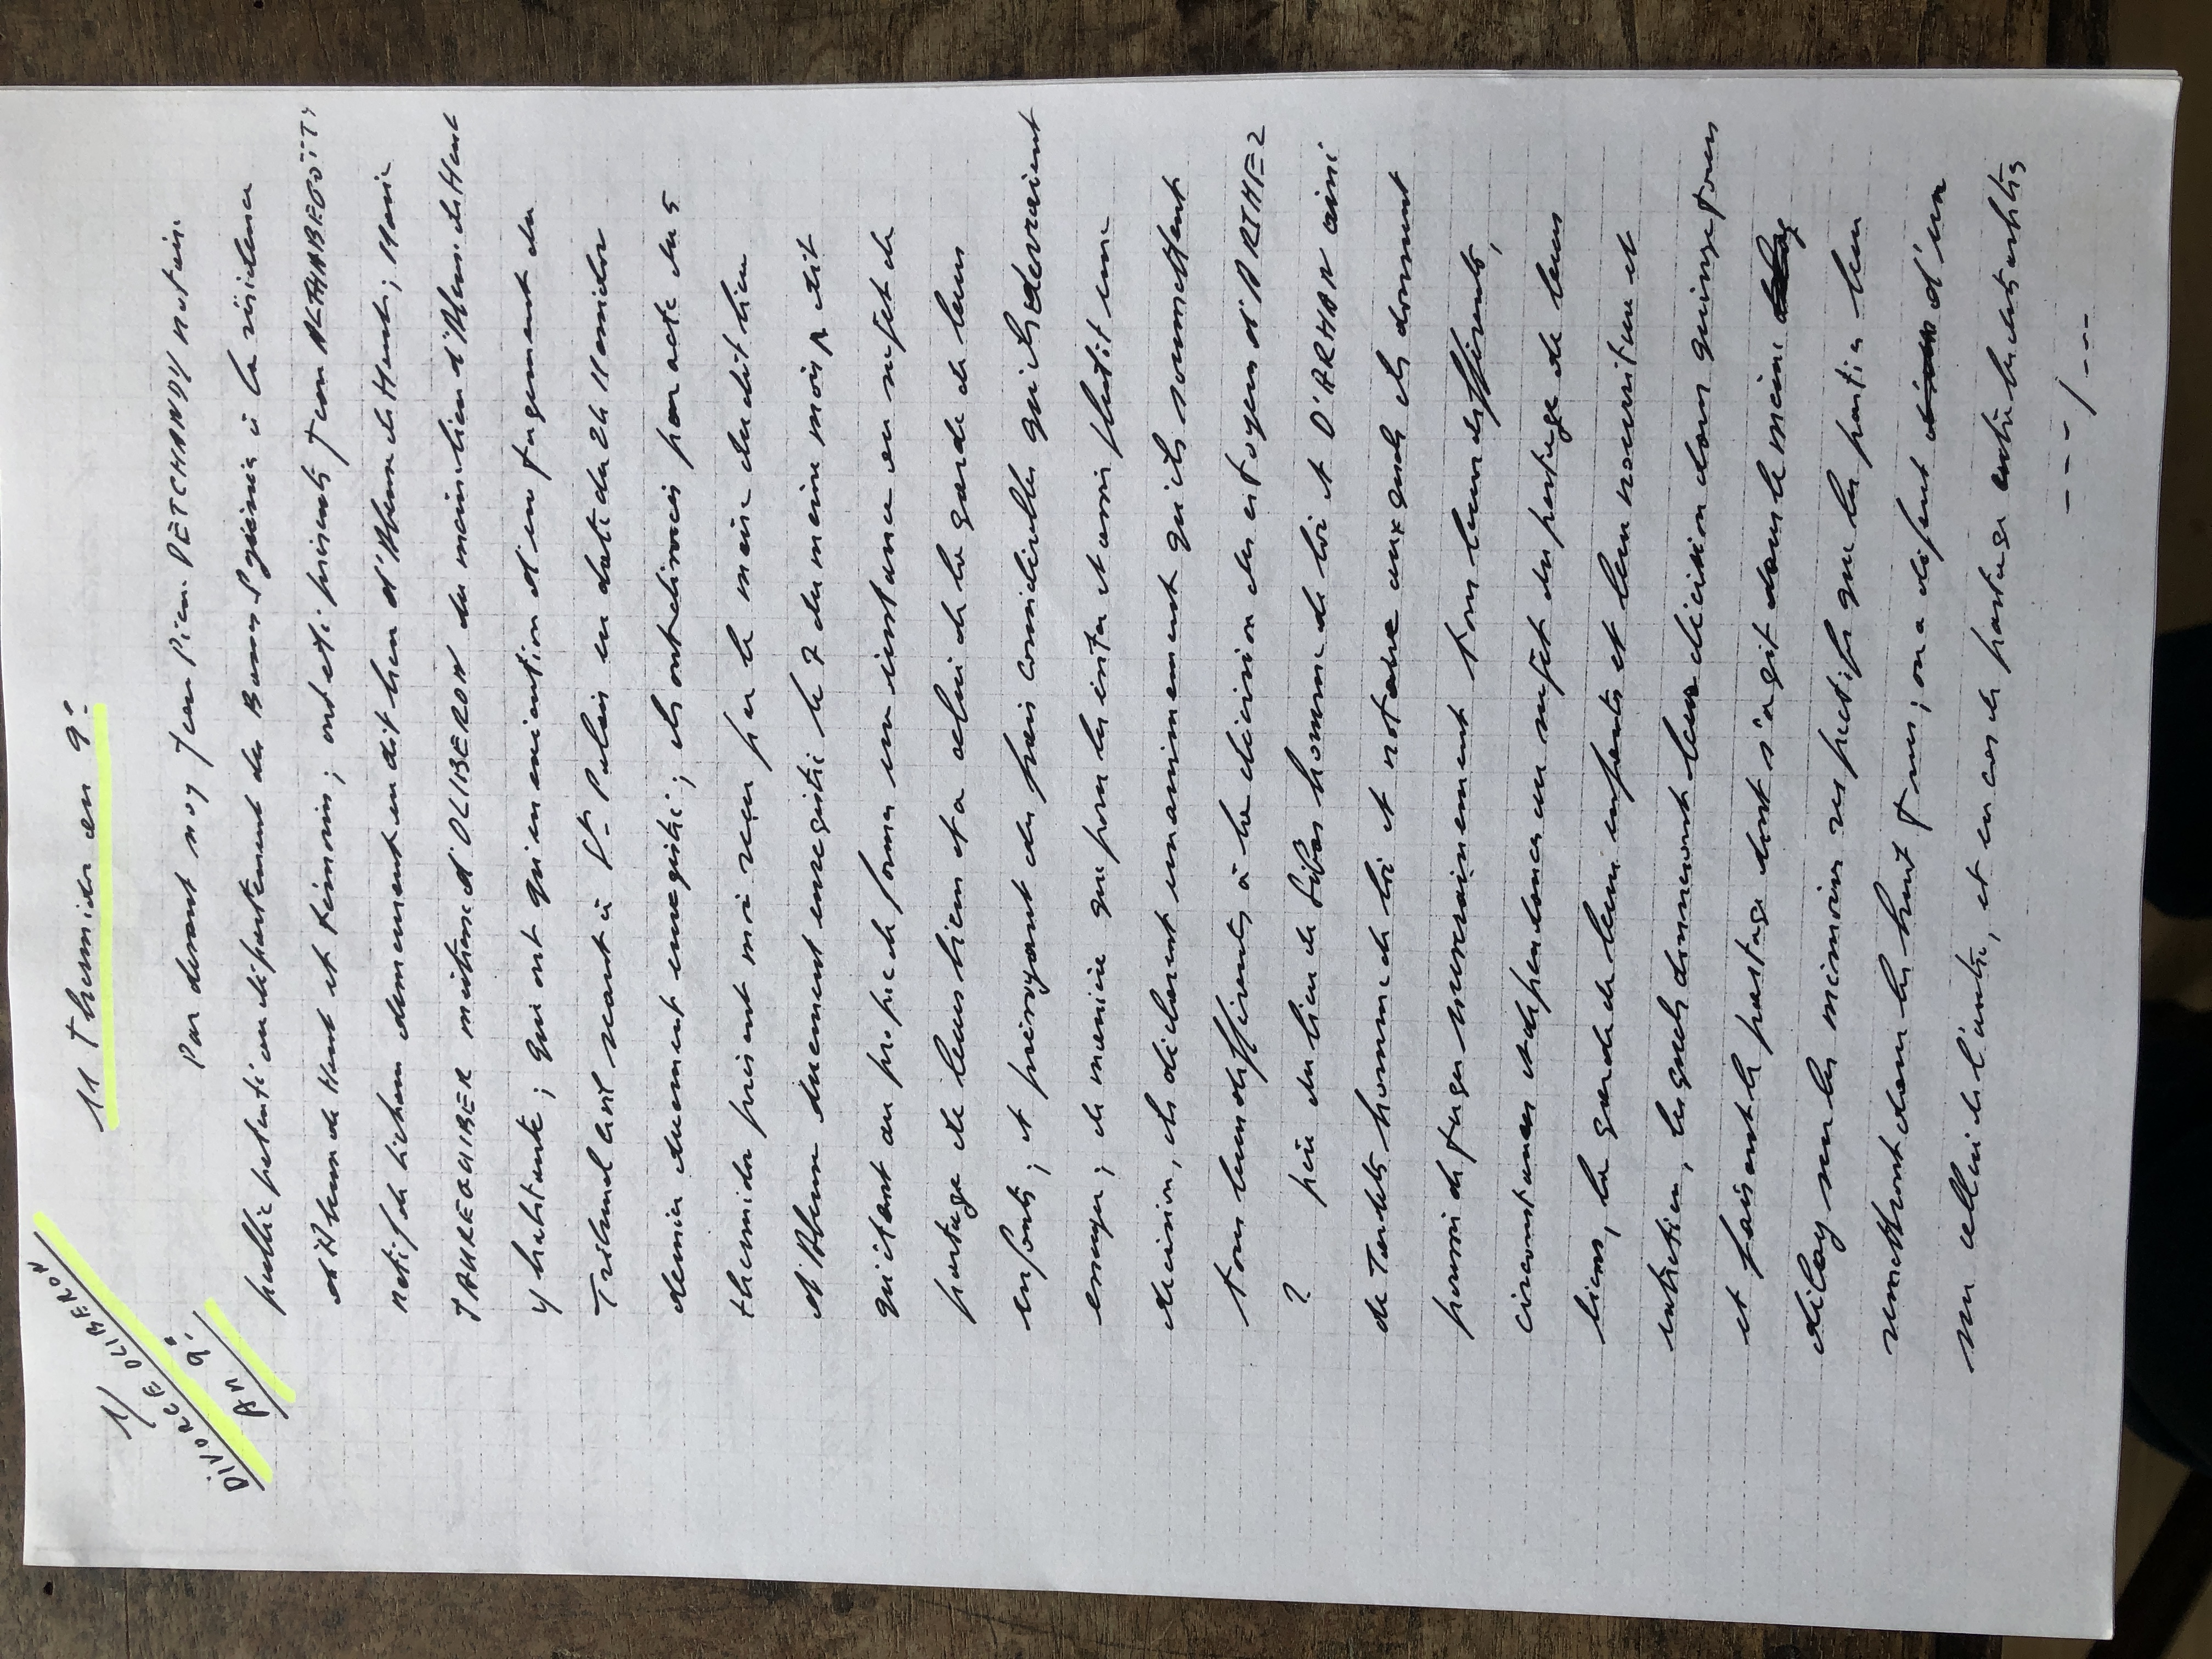 1/
DIVORCE OLIBERON
AN 9e
11 thermidor an 9e
Par devant moy Jean Pierre DETCHANDY notaire
public patenté au département des Basses Pyrénées à la résidence
et témoins; ont été présents Jean ALTHABEGOÏTY
natif de lichans demeurant au dit lieu d'Abense de Haut; Marie
JAUREGUIBER maitresse d'OLIBERON de maintien d'Abense de Haut
y habitante; qui ont qu'en exécution d'un jugement du
Tribunal civil séant à St Palais en date du 26 Messidor
dernier duement enregistré; ils ont divorcé par acte du 5
thermidor présent mois reçu par le maire du dit lieu
d'Abense duement enregistré le 7 du meme mois, et dit
qu'étant au propre de former une instance au sujet du
partage de leurs biens et a celui de la garde de leurs
enfants; et prévoyant des frais considérables qu'ils devraient
essuyer; de manière que pour les éviter et avoir plutot une
décision, ils déclarent unanimement qu'ils soumettent
tous leurs différents à la décision des citoyens d'ARTHEZ
? père du lieu de Libar homme de loi et D'ARHAN ainé
de Tardets homme de loi et notaire auxquels ils donnent
pouvoir de juger souverainement tous leurs différents,
circonstances et dépendances au sujet du partage de leurs
biens, la garde de leurs enfants et leur nourriture et
entretien, lesquels donneront leur décision dans quinze jours
et fairont le partage dont s'agit dans le meme
délay sur les mémoires respectifs que les parties leur
remettront dans les huit jours; ou a défaut d'un
sur cellui de l'autre, et en cas de partage entre lesdits arbitres
---/---